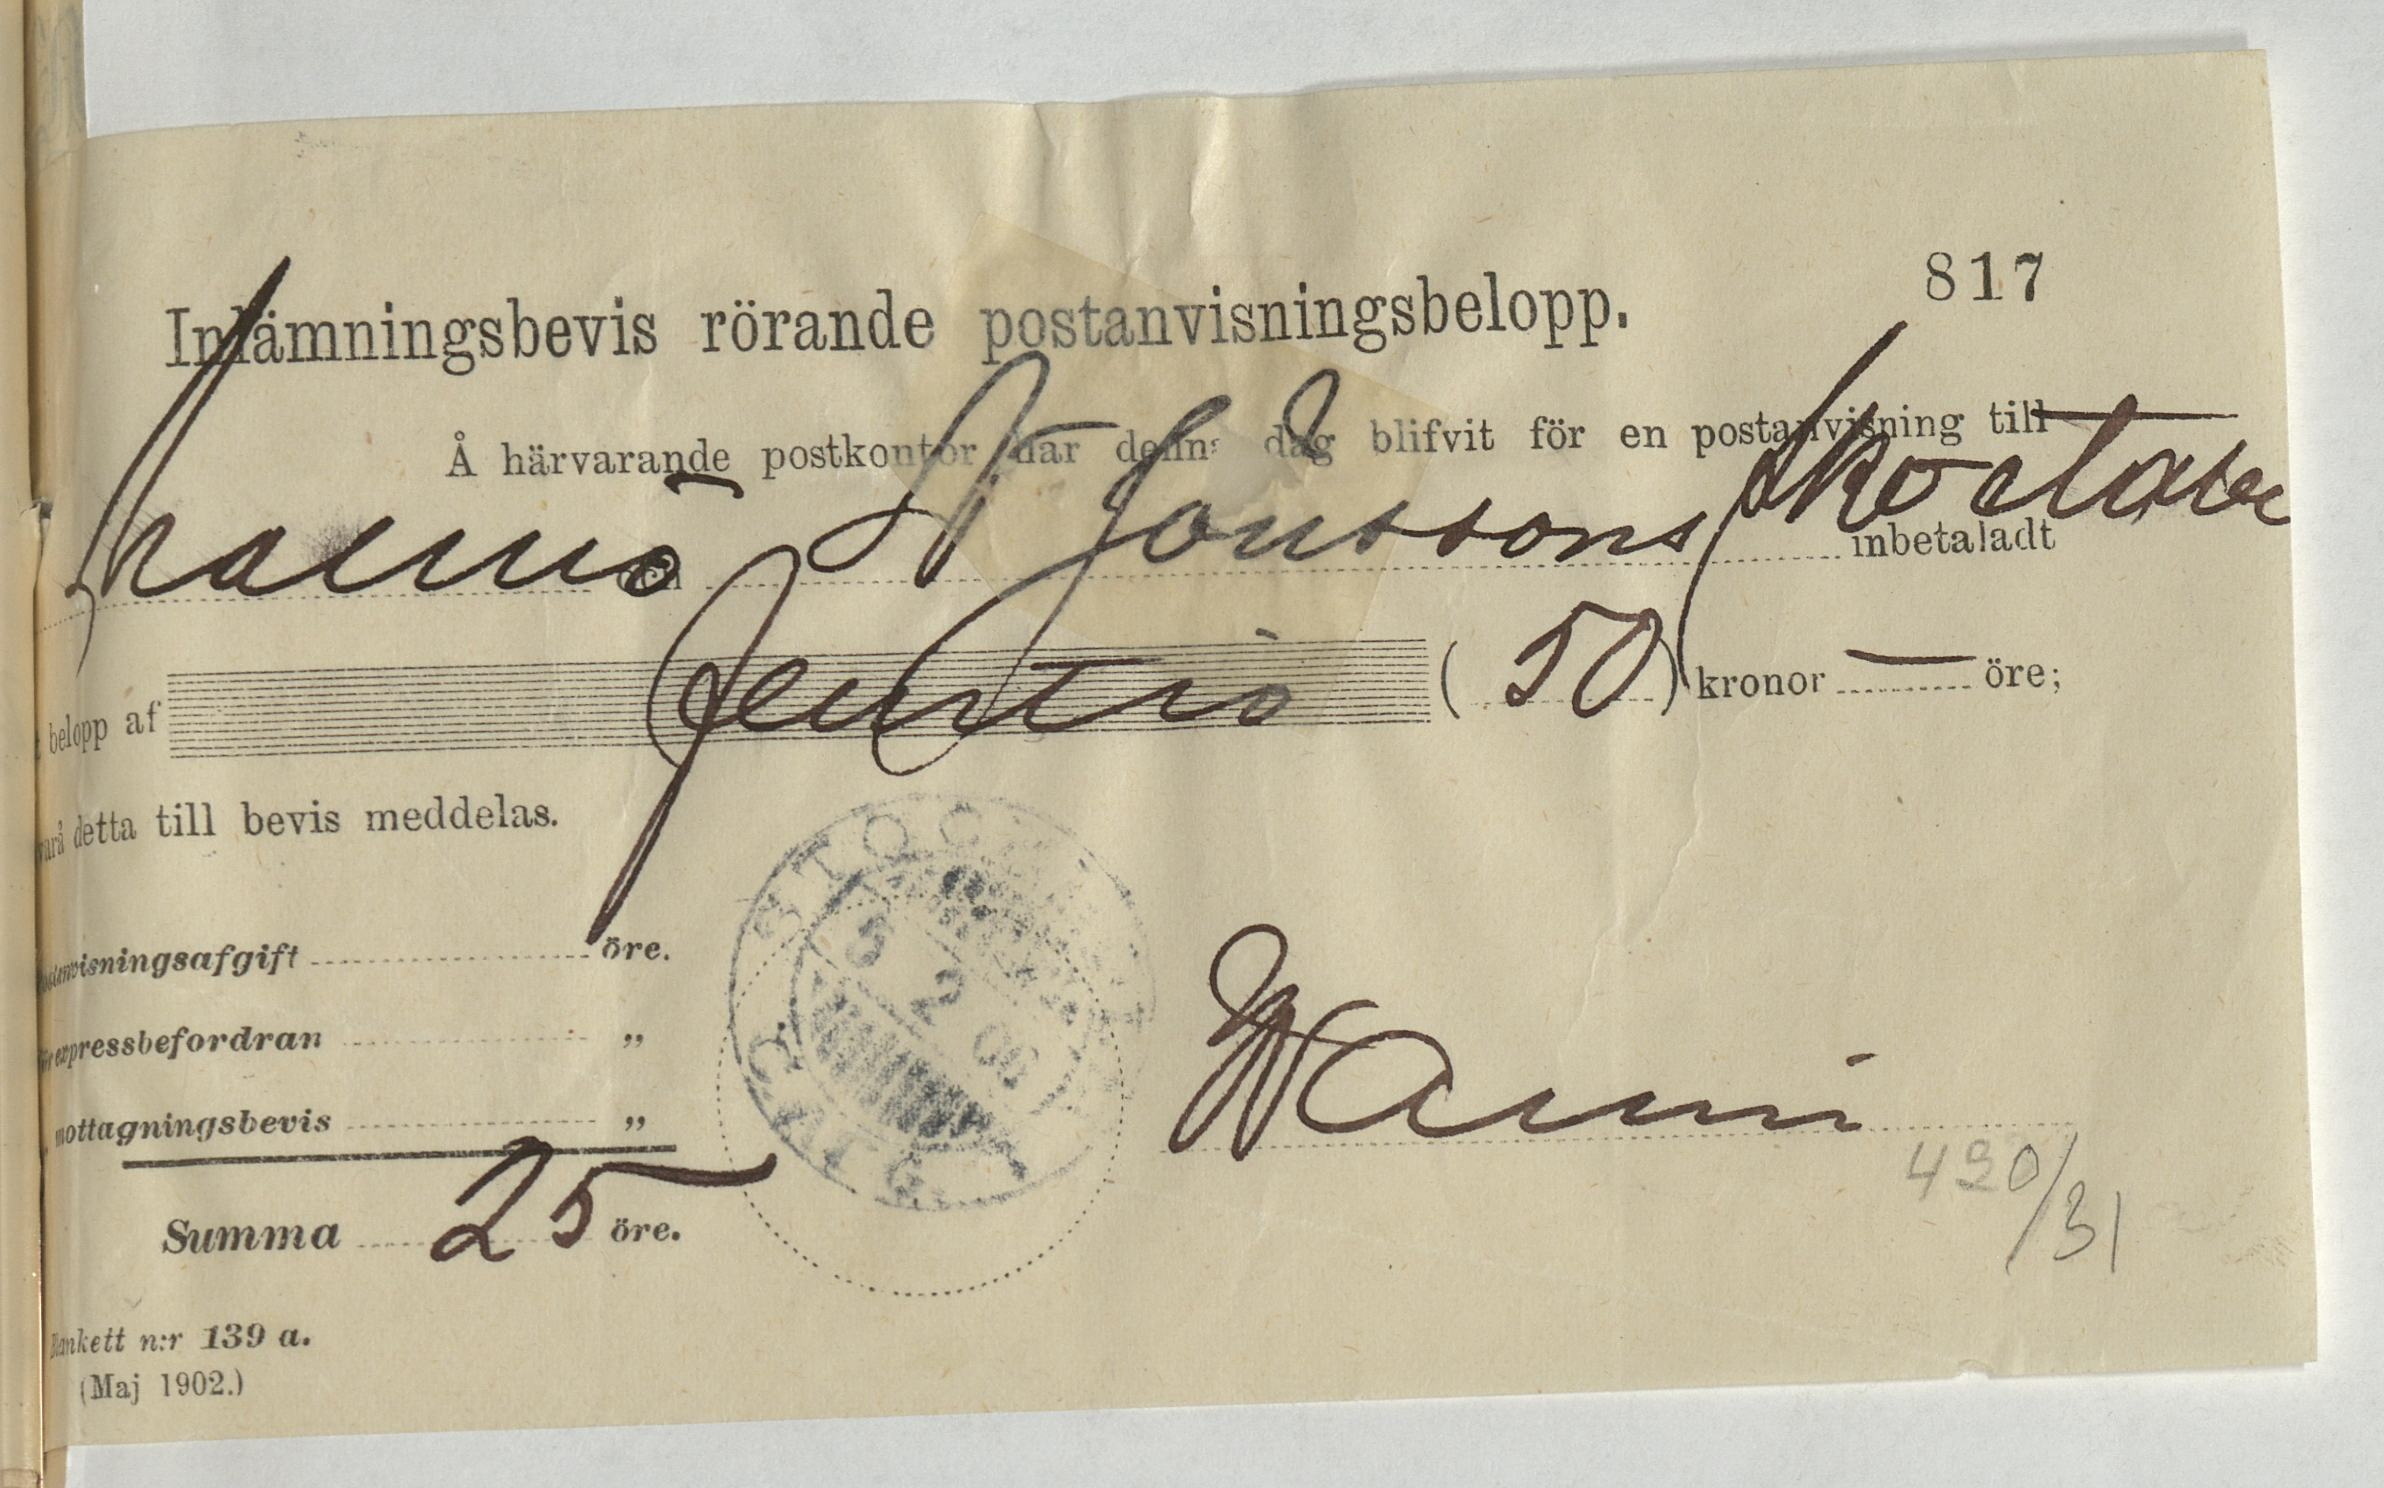 817
Inlämningsbevis rörande postanvisningsbelopp.
Å härvarande postkontor har denna dag blifvit för en postanvisning till
och A Jonssons inbetaladt
belopp af Femtio (50) kronor — öre;
varå detta till bevis meddelas.
ostanvisningsafgift öre.
ör expressbefordran „
mottagningsbevis „
Summa 25 öre.
3 2
420/31
Blankett n:r 139 a.
(Maj 1902.)